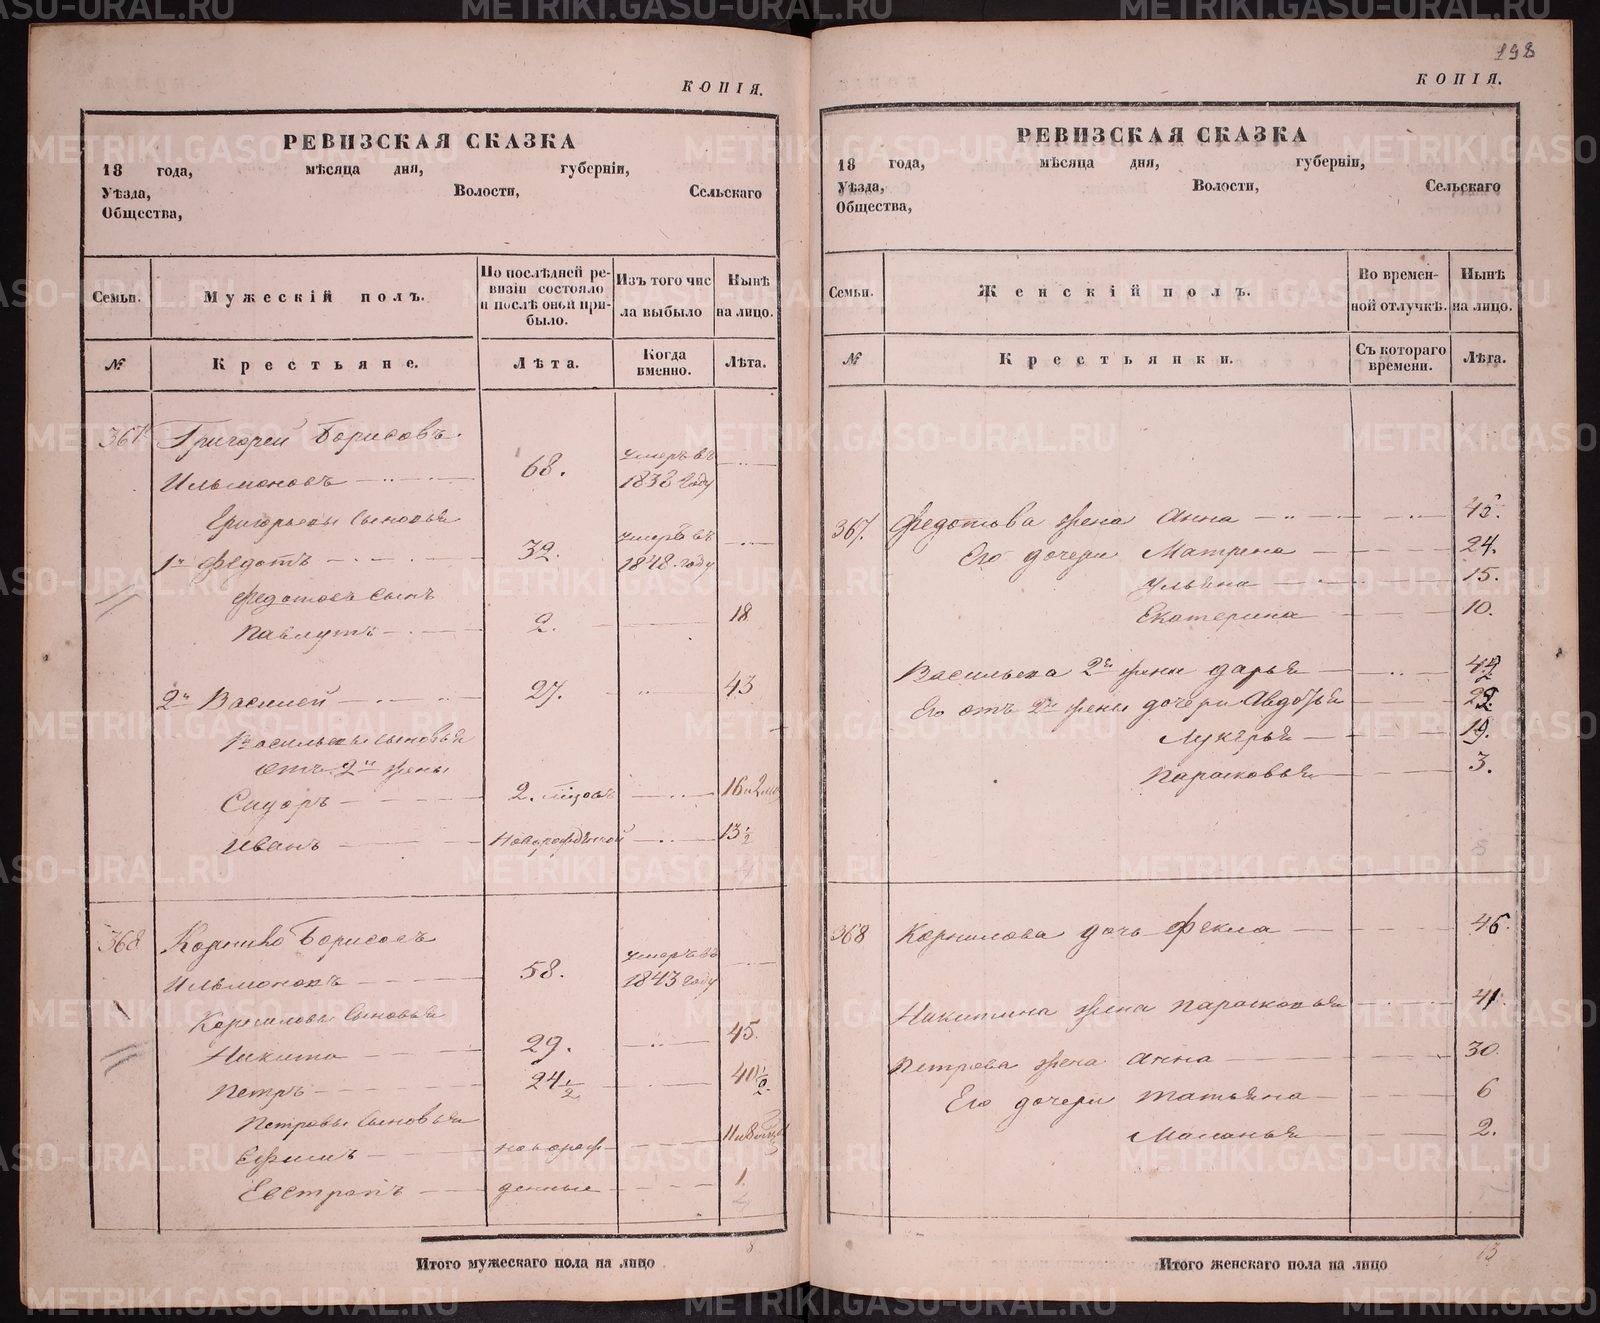 КОПІЯ.
РЕВИЗСКАЯ СКАЗКА
18 года, мѣсяца дня, губерніи,
Уѣзда, Волости, Сельскаго
Общества,
Семьи. Мужескій полъ. По послѣдней ревизіи состояло и послѣ оной прибыло. Изъ того числа выбыло Нынѣ на лицо.
№ Крестьяне. Лѣта. Когда вменно. Лѣта.
367 Григорей Борисовъ
Ильмоновъ 68. умеръ въ 1838 году
Григорьевы сыновья
1й Федотъ 32. умеръ въ 1848 году
Федотовъ сынъ
Павлутъ 2. 18
2й Василей 27. 43
Васильевы сыновья
отъ 2й жены
Сидоръ 2. мѣсяцъ 16 и 2 мѣ
Иванъ Новорожденной 13 1/2
368 Корнило Борисовъ
Ильмоновъ 58. умеръ въ 1843 году
Корниловы сыновья
Никита 29. 45.
Петръ 24 1/2 40 1/2
Петровы сыновья
Ефимъ новорож-
Евстропъ денные 1.
Итого мужескаго пола на лицо 8
198
КОПІЯ.
РЕВИЗСКАЯ СКАЗКА
18 года, мѣсяца дня, губерніи,
Уѣзда, Волости, Сельскаго
Общества,
Семьи. Женскій полъ. Во временной отлучкѣ. Нынѣ на лицо.
№ Крестьянки. Съ котораго времени. Лѣта.
367. Федотова жена Анна 45.
Его дочери Матрена 24.
Ульяна 15.
Екатерина 10.
Васильева 2я жена Дарья 42
Его отъ 2й жены дочери Авдотья 22.
Лукерья 19.
Парасковья 3.
368 Корнилова дочь Фекла 45.
Никитина жена Парасковья 41
Петрова жена Анна 30.
Его дочери Татьяна 6
Маланья 2.
Итого женскаго пола на лицо 13
METRIKI.GASO-URAL.RU